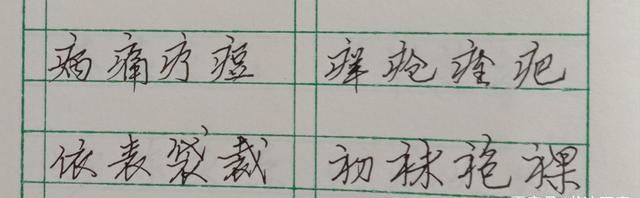 病痛疗痘 痒疮痊疤
依表袋裁 初袜袍裸